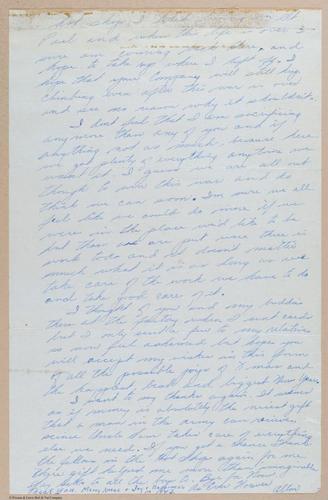 and shop, I
Paul and when this life is over I
sure am coming and
hope to take up where I left off. I
hope that your Company will still keep
climbing even after this war is over
and see no reason why it shouldn't.
I don't feel that I am sacrificing
anymore than any of you and if
anything not as much, because here
we get plenty of everything anytime we
want it. I guess we are all out
though to win this war and do
think we can soon. I'm sure we all
feel like we could do more if we
were in the place we'd like to be
but then we are put where there is
work to do and it doesn't matter
much what it is as long as we
take care of the work we have to do
and take good care of it.
I thought of you and my buddies
there at the factory when I sent cards
but I only sent a few to my relatives
so won't feel awkward but hope you
will accept my wishes in this form
of all the possible joys of X-mas and
the happiest, best and biggest New Year.
I want to say thanks again. It seems
as if money is absolutely the nicest gift
that a man in the army can receive,
since Uncle Sam takes care of everything
else we need. If you get a chance
the fellows in that shop again for me
their gift helped me more than imaginable.